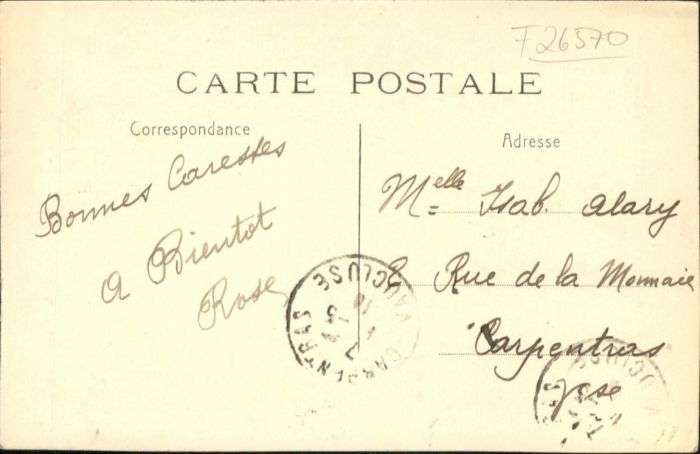 F26570
CARTE POSTALE
Correspondance
Bonnes Caresses
A Bientot
Rose
Adresse
Melle Isab. Alary
8 Rue de la Monnaie
Carpentras
Vcse
CARPENTRAS
VAUCLUSE